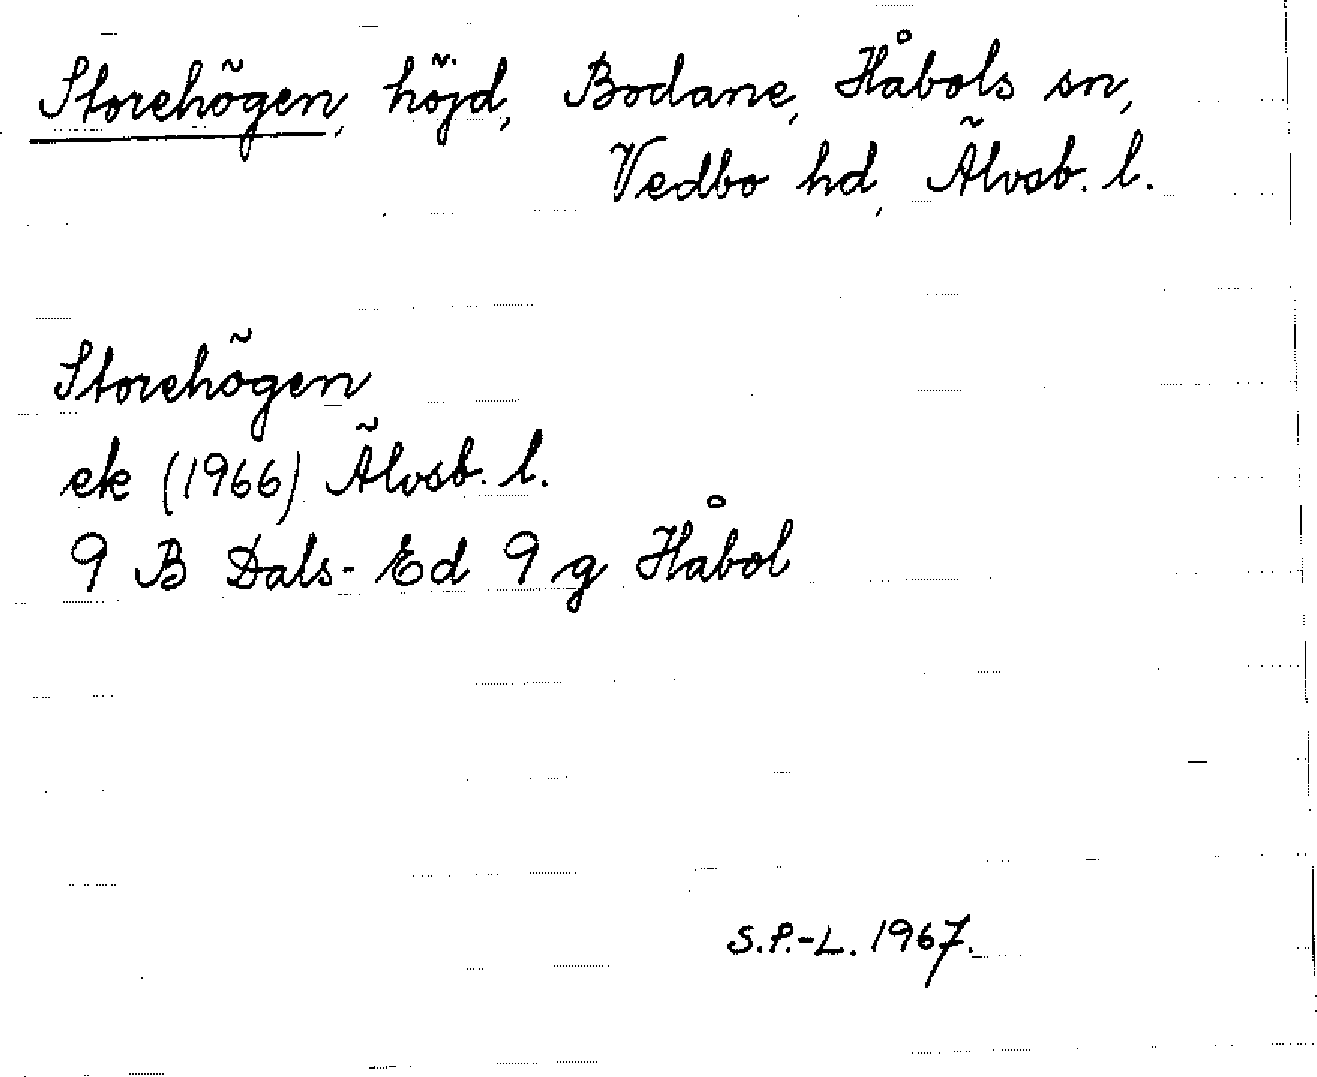 Storehögen, höjd, Bodane, Håbols sn,
Vedbo hd, Älvsb. l.
Storehögen
ek (1966) Älvsb. l.
9 B Dals-Ed 9 g Håbol
S.P.-L. 1967.